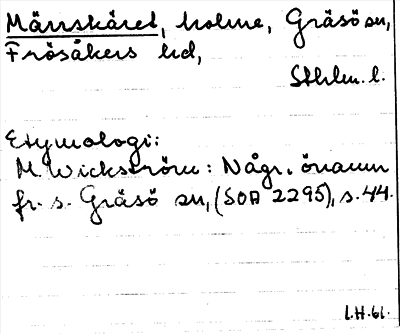 Märrskäret, holme, Gräsö sn,
Frösåkers hd,
Sthlm. l.
Etymologi:
M. Wickström: Någr. önamn
fr. s. Gräsö sn, (SOA 2295), s. 44.
L.H. 61.